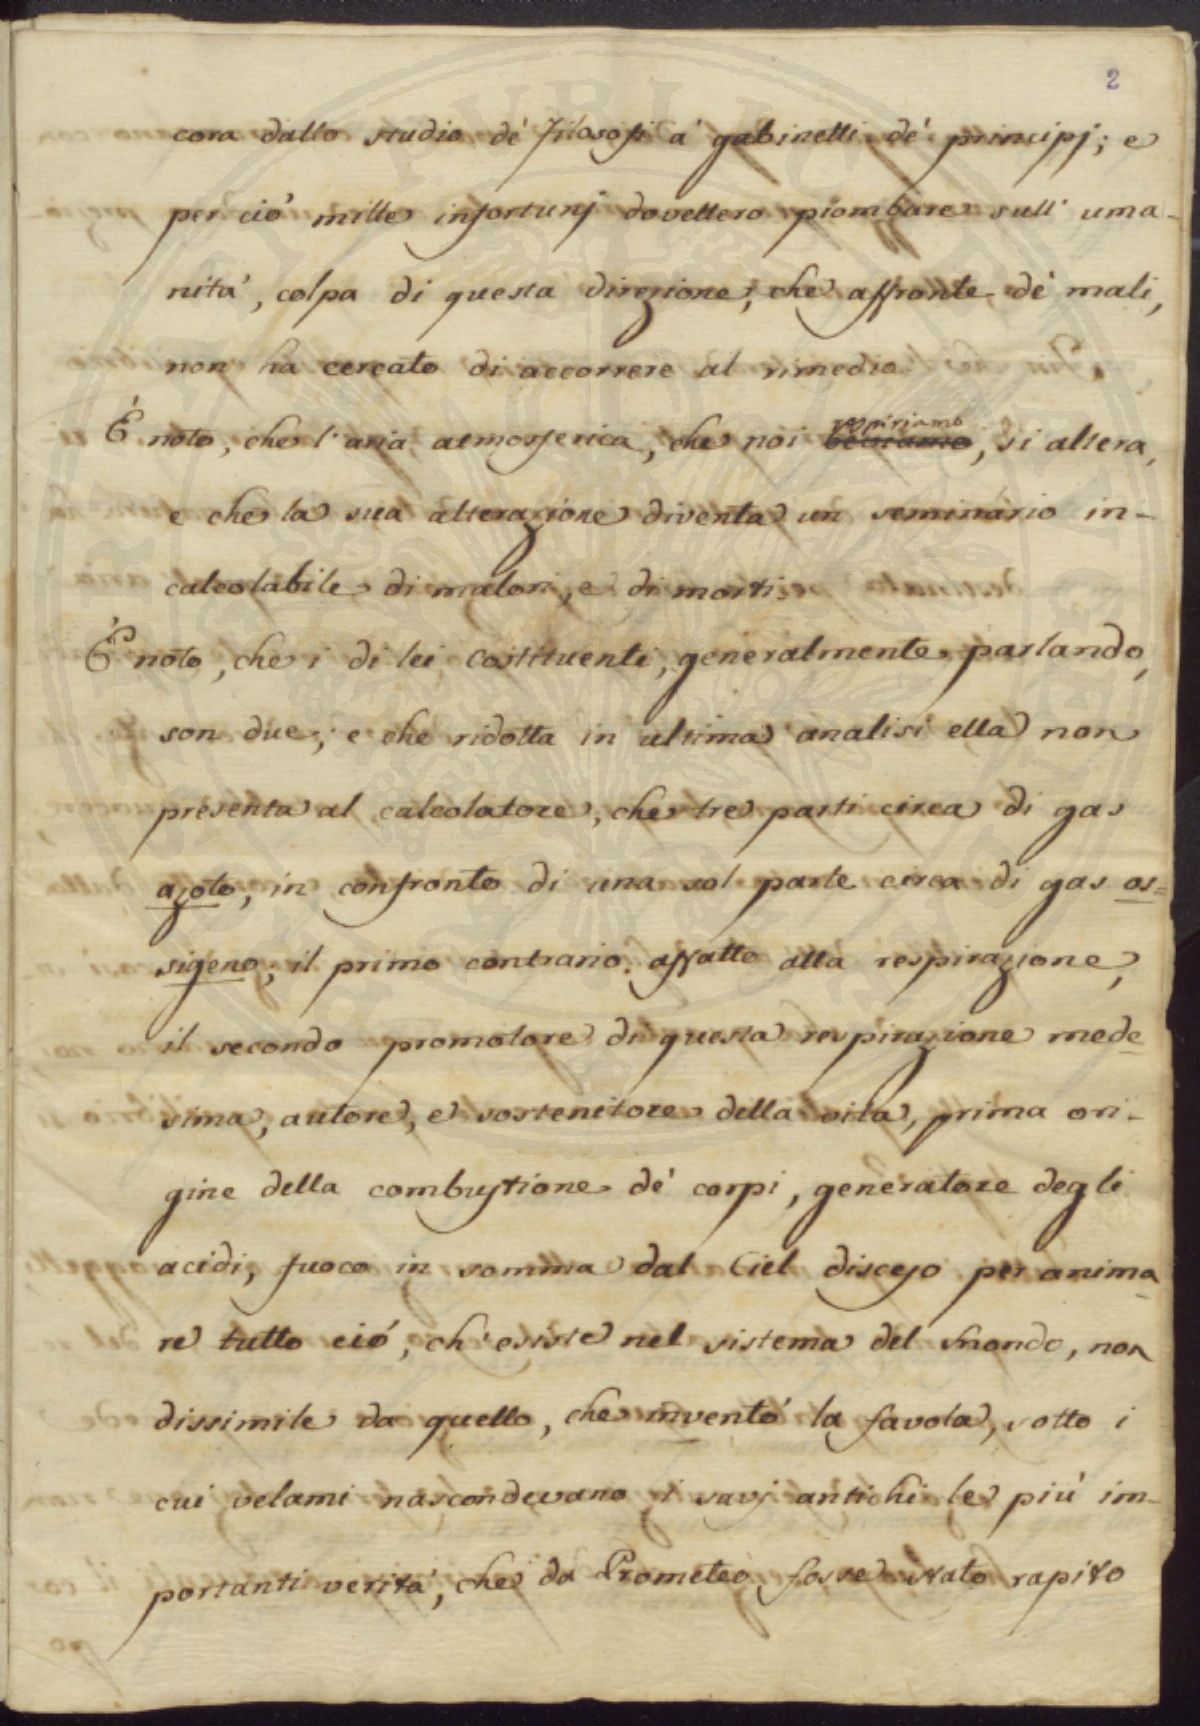 2
cora dallo studio de' Filosofi a' gabinetti de' principj; e
per ciò mille infortunj dovettero piombare sull' uma-
nità, colpa di questa direzione, che affronte de' mali,
non ha cercato di accorrere al rimedio.
È noto, che l'aria atmosferica, che noi respiriamo, si altera,
e che la sua alterazione diventa un seminario in-
calcolabile di malori, e di morti.
È noto, che i di lei costituenti, generalmente parlando,
son due; e che ridotta in ultima analisi ella non
presenta al calcolatore, che tre parti circa di gas
azoto, in confronto di una sol parte circa di gas os=
sigeno; il primo contrario affatto alla respirazione,
il secondo promotore di questa respirazione mede
sima, autore, e sostenitore della vita, prima ori-
gine della combustione de' corpi, generatore degli
acidi, fuoco in somma dal Ciel disceso per anima
re tutto ciò, ch'esiste nel sistema del Mondo, non
dissimile da quello, che inventò la favola, sotto i
cui velami nascondevano i savj antichi le più im-
portanti verità, che da Prometeo fosse stato rapito